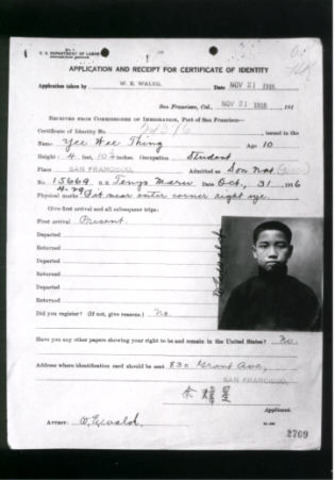 U. S. DEPARTMENT OF LABOR
IMMIGRATION SERVICE
APPLICATION AND RECEIPT FOR CERTIFICATE OF IDENTITY
Application taken by W. E. WALSH. Date NOV 21 1916
San Francisco, Cal., NOV 21 1916 191
RECEIVED FROM COMMISSIONER OF IMMIGRATION, Port of San Francisco—
Certificate of Identity No. issued in the
Name: Yee Wee Thing Age 10
Height: 4 feet, 10 inches. Occupation Student
Place SAN FRANCISCO. Admitted as Son Nat
No. 15669 S S Tenyo Maru Date Oct, 31 1916
4-29
Physical marks Pit near outer corner right eye.
Give first arrival and all subsequent trips:
First arrival Present.
Departed
Returned
Departed
Returned
Departed
Returned
Departed
Returned
Did you register? (If not, give reasons.) No.
Have you any other papers showing your right to be and remain in the United States? No.
Address where identification card should be sent 830 Grant Ave,
SAN FRANCISCO,
余
Applicant.
2709